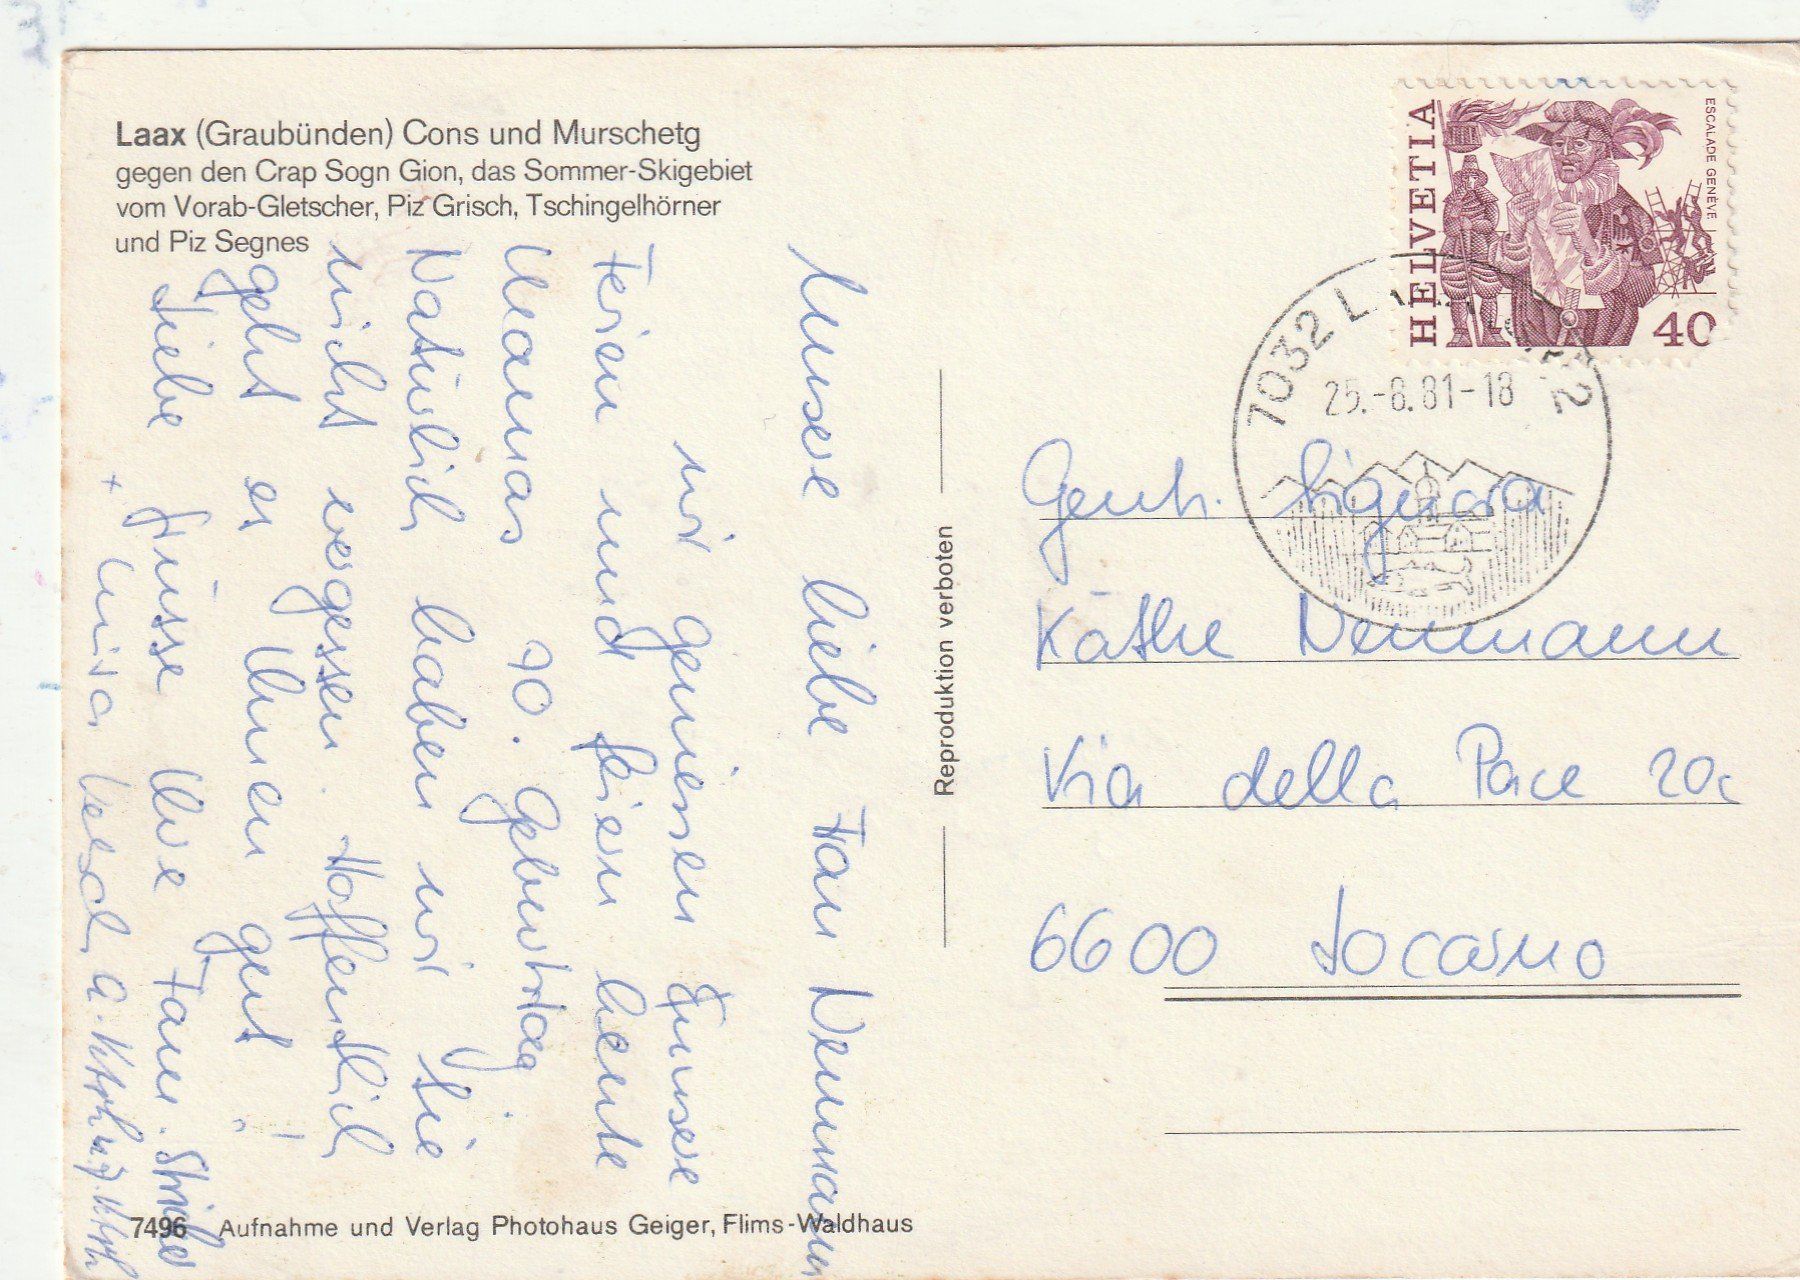 Laax (Graubünden) Cons und Murschetg
gegen den Crap Sogn Gion, das Sommer-Skigebiet
vom Vorab-Gletscher, Piz Grisch, Tschingelhörner
und Piz Segnes
Unsere liebe Frau Neumann
wir geniessen unsere
Ferien und feiern heute
Mamas 70. Geburtstag.
Natürlich haben wir Sie
nicht vergessen. Hoffentlich
geht es Ihnen gut!
Liebe Grüsse Ihre Fam.
+
Reproduktion verboten
HELVETIA
ESCALADE GENÈVE
40
7032 2
25.-8.81-18
Gent. Signora
Käthe Neumann
Via della Pace 20c
6600 Locarno
7496 Aufnahme und Verlag Photohaus Geiger, Flims-Waldhaus